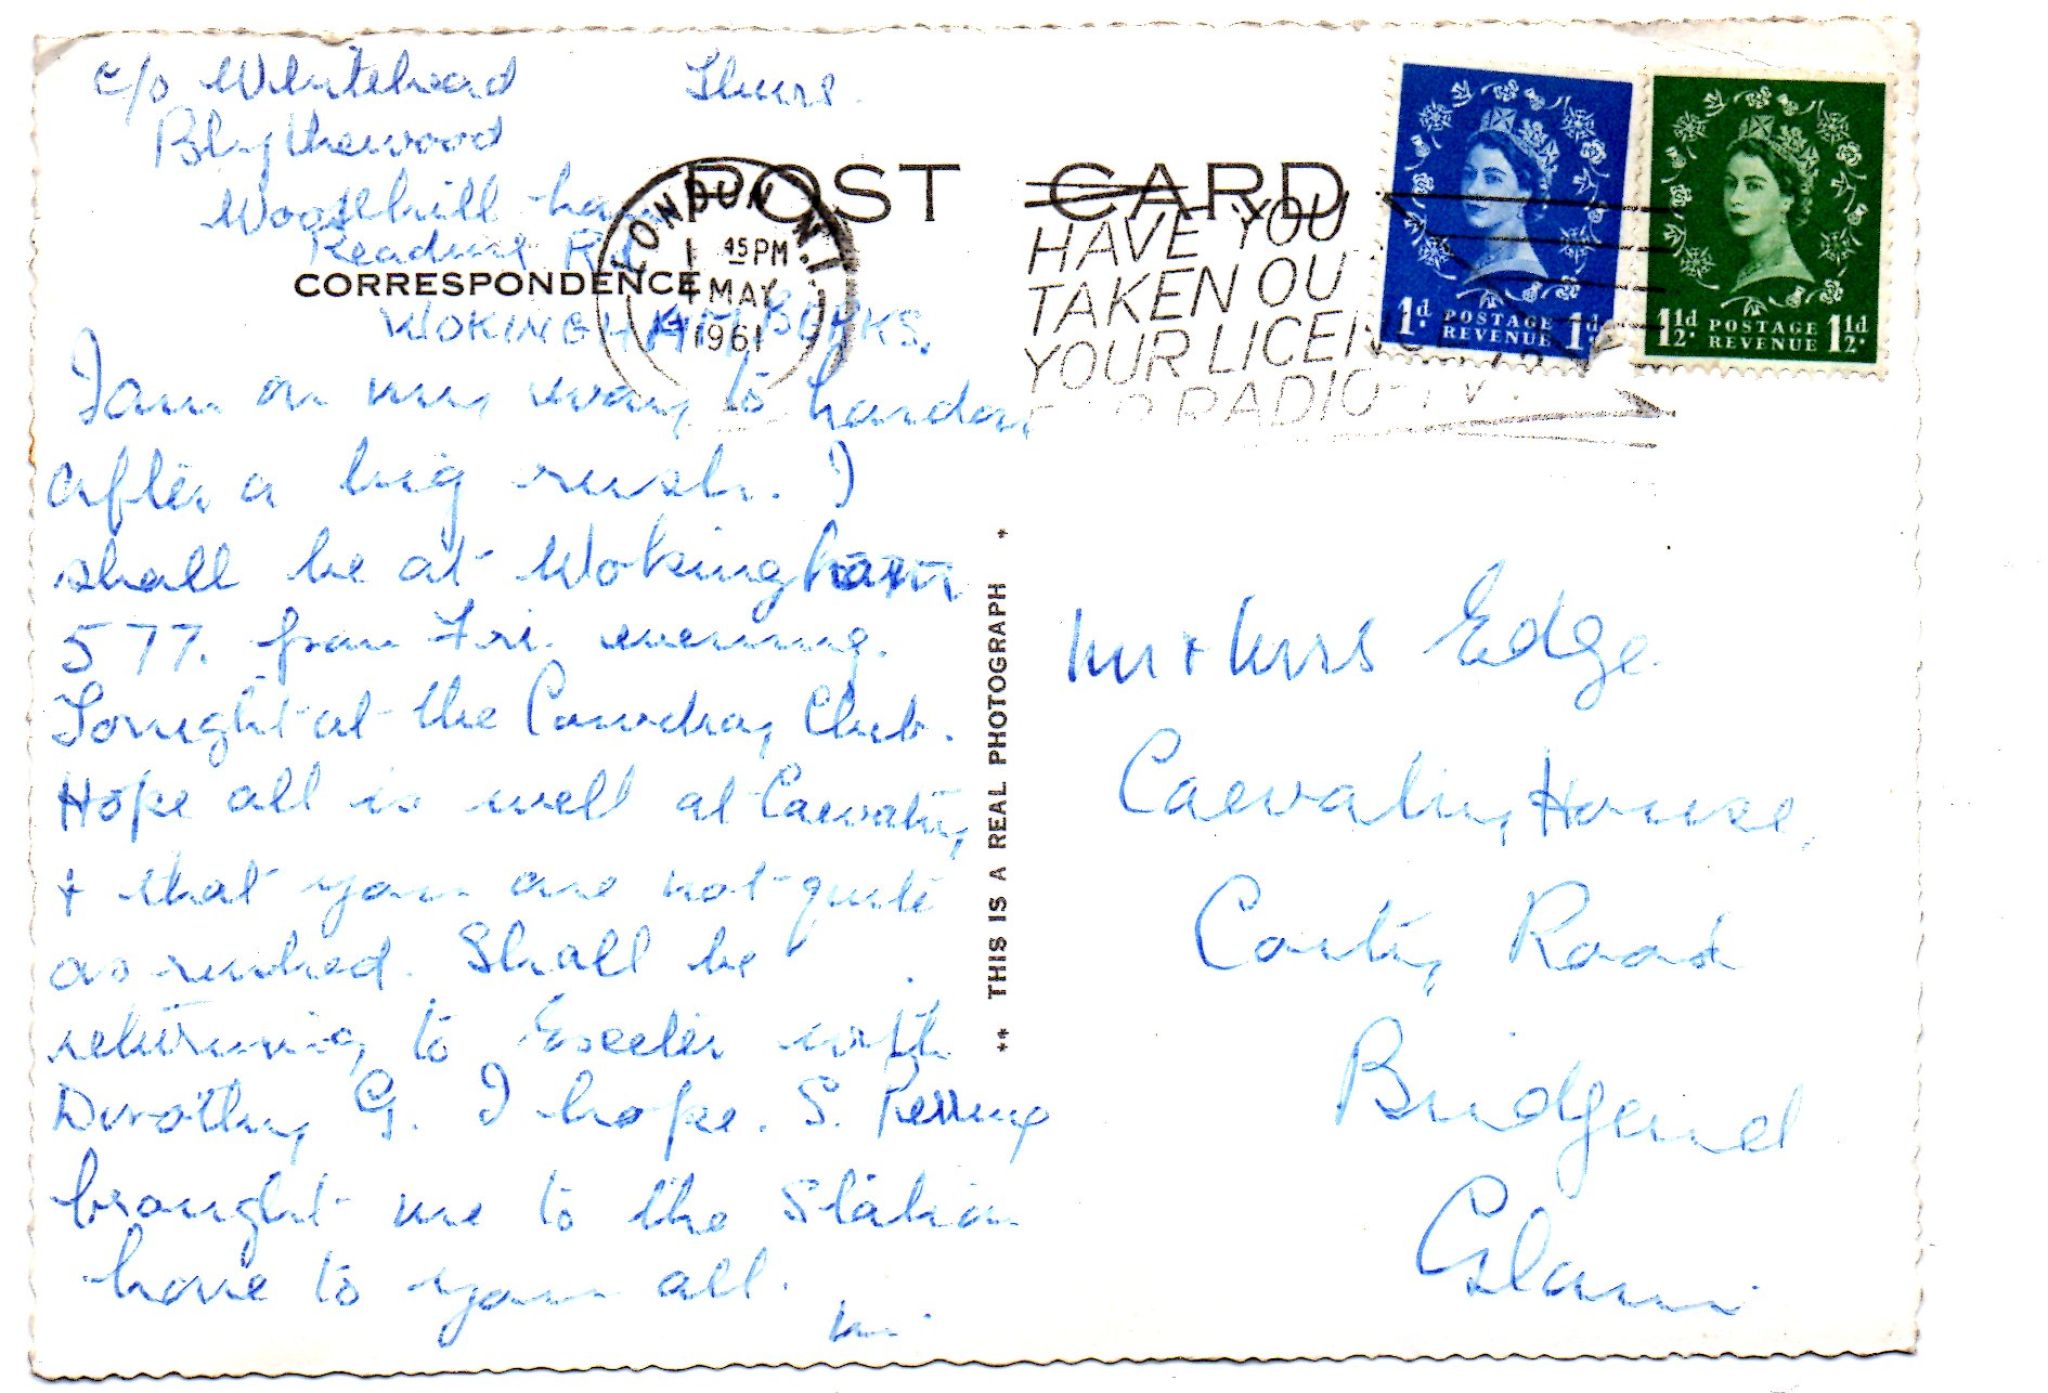 c/o Whitehead
Thurs.
Blythewood
Woosehill
Reading Rd
WOKINGHAM BERKS.
POST CARD
CORRESPONDENCE
LONDON N.1
45 PM
MAY
1961
HAVE YOU
TAKEN OU
YOUR LICEN
RADIO-TV
1d. POSTAGE REVENUE 1d.
1½d. POSTAGE REVENUE 1½d.
I am on my way to London
after a big rush. I
shall be at Wokingham
577. from Fri. evening.
Tonight at the Cowdray Club.
Hope all is well at Caevatry
+ that you are not quite
as rushed. Shall be
returning to Exeter with
Dorothy G. I hope. S.
brought me to the Station
Love to you all.
M.
** THIS IS A REAL PHOTOGRAPH *
Mr + Mrs Edge
House,
Coity Road
Bridgend
Glam.